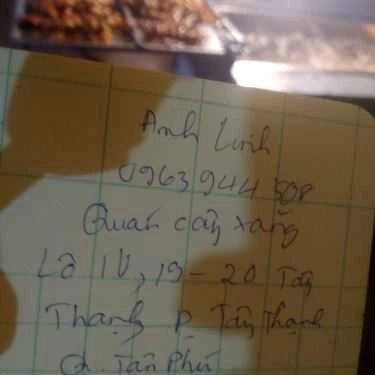 Anh Linh
0963944508
Quán cây xăng
Lô IV, 19-20 Tân
Thạnh P. Tây Thạnh
Q. Tân Phú